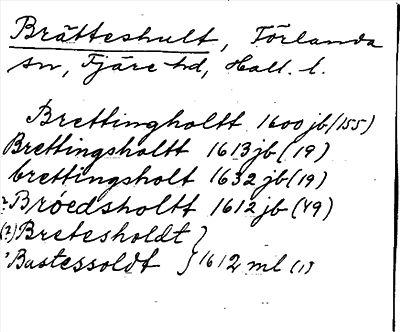 Brätteshult, Törlanda
sn, Fjäre hd, Hall. l.
Brettingholtt 1600 jb (155)
Brettingsholtt 1613 jb (19)
brettingsholt 1632 jb (19)
? Bröedsholtt 1612 jb (49)
(?) Bretesholdt }
? Bastessoldt } 1612 ml (1)